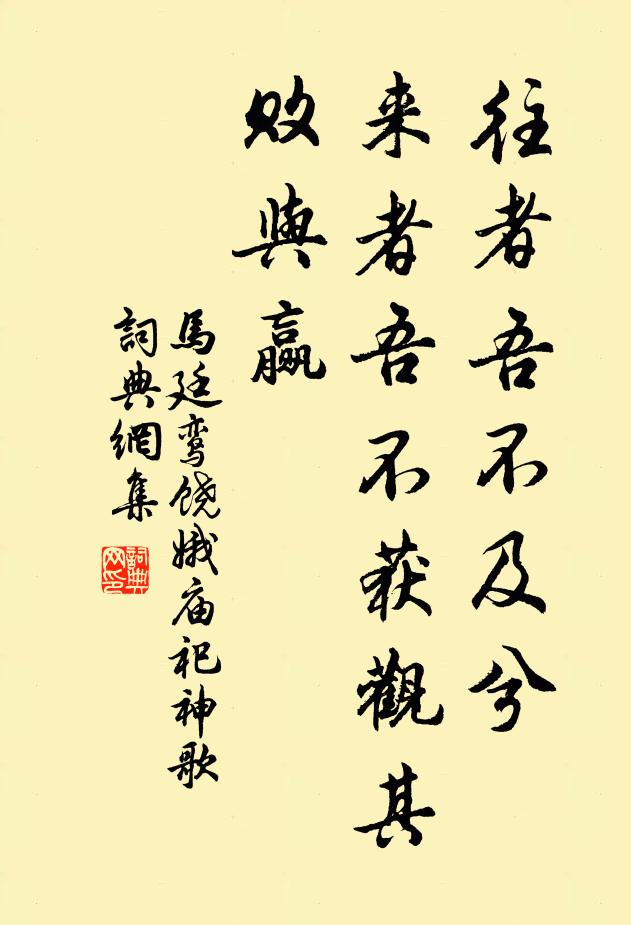 往者吾不及兮
来者吾不获觀其
败與贏
馬廷鸾饶娥庙祀神歌
詞典網集
詞典
网印